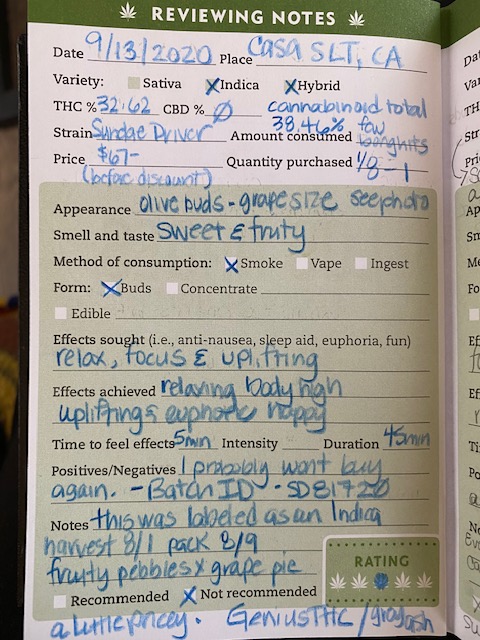 REVIEWING NOTES
Date 9/13/2020 Place Casa SLT, CA
Variety: Sativa Indica Hybrid
THC % 32.62 CBD % Ø cannabinoid total
38.46% few
Strain Sundae Driver Amount consumed bonghits
Price $67- Quantity purchased 1/8 - 1
(before discount)
Appearance olive buds - grape size see photo
Smell and taste sweet & fruity
Method of consumption: Smoke Vape Ingest
Form: Buds Concentrate
Edible
Effects sought (i.e., anti-nausea, sleep aid, euphoria, fun)
relax, focus & uplifting
Effects achieved relaxing body high
uplifting & euphoric happy
Time to feel effects 5min Intensity Duration 45min
Positives/Negatives I probably wont buy
again. - Batch ID - SD81720
Notes this was labeled as an Indica
harvest 8/1 pack 8/9
fruity pebbles x grape pie
RATING
Recommended Not recommended
a little pricey. Genius THC / gray ash